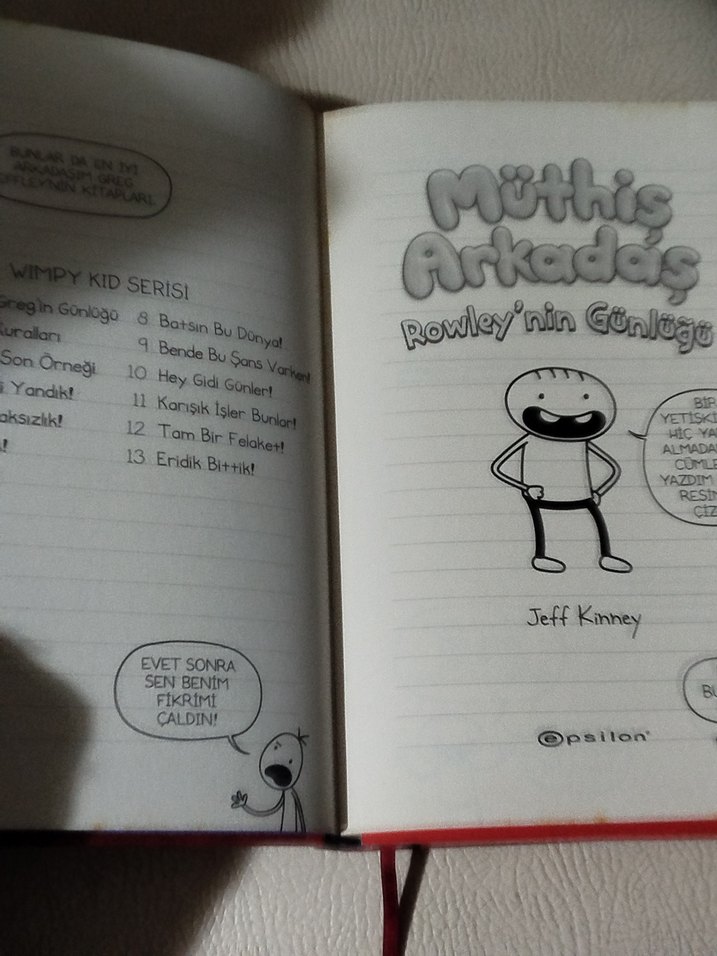 BUNLAR DA EN İYİ
ARKADAŞIM GREG
HEFFLEY'NİN KİTAPLARI.
WIMPY KID SERİSİ
Greg'in Günlüğü
Kuralları
Son Örneği
Yandık!
8 Batsın Bu Dünya!
9 Bende Bu Şans Varken!
10 Hey Gidi Günler!
11 Karışık İşler Bunlar!
12 Tam Bir Felaket!
13 Eridik Bittik!
EVET SONRA
SEN BENİM
FİKRİMİ
ÇALDIN!
Müthiş
Arkadaş
Rowley'nin Günlüğü
BİR
HİÇ
YAZDIM
Jeff Kinney
epsilon